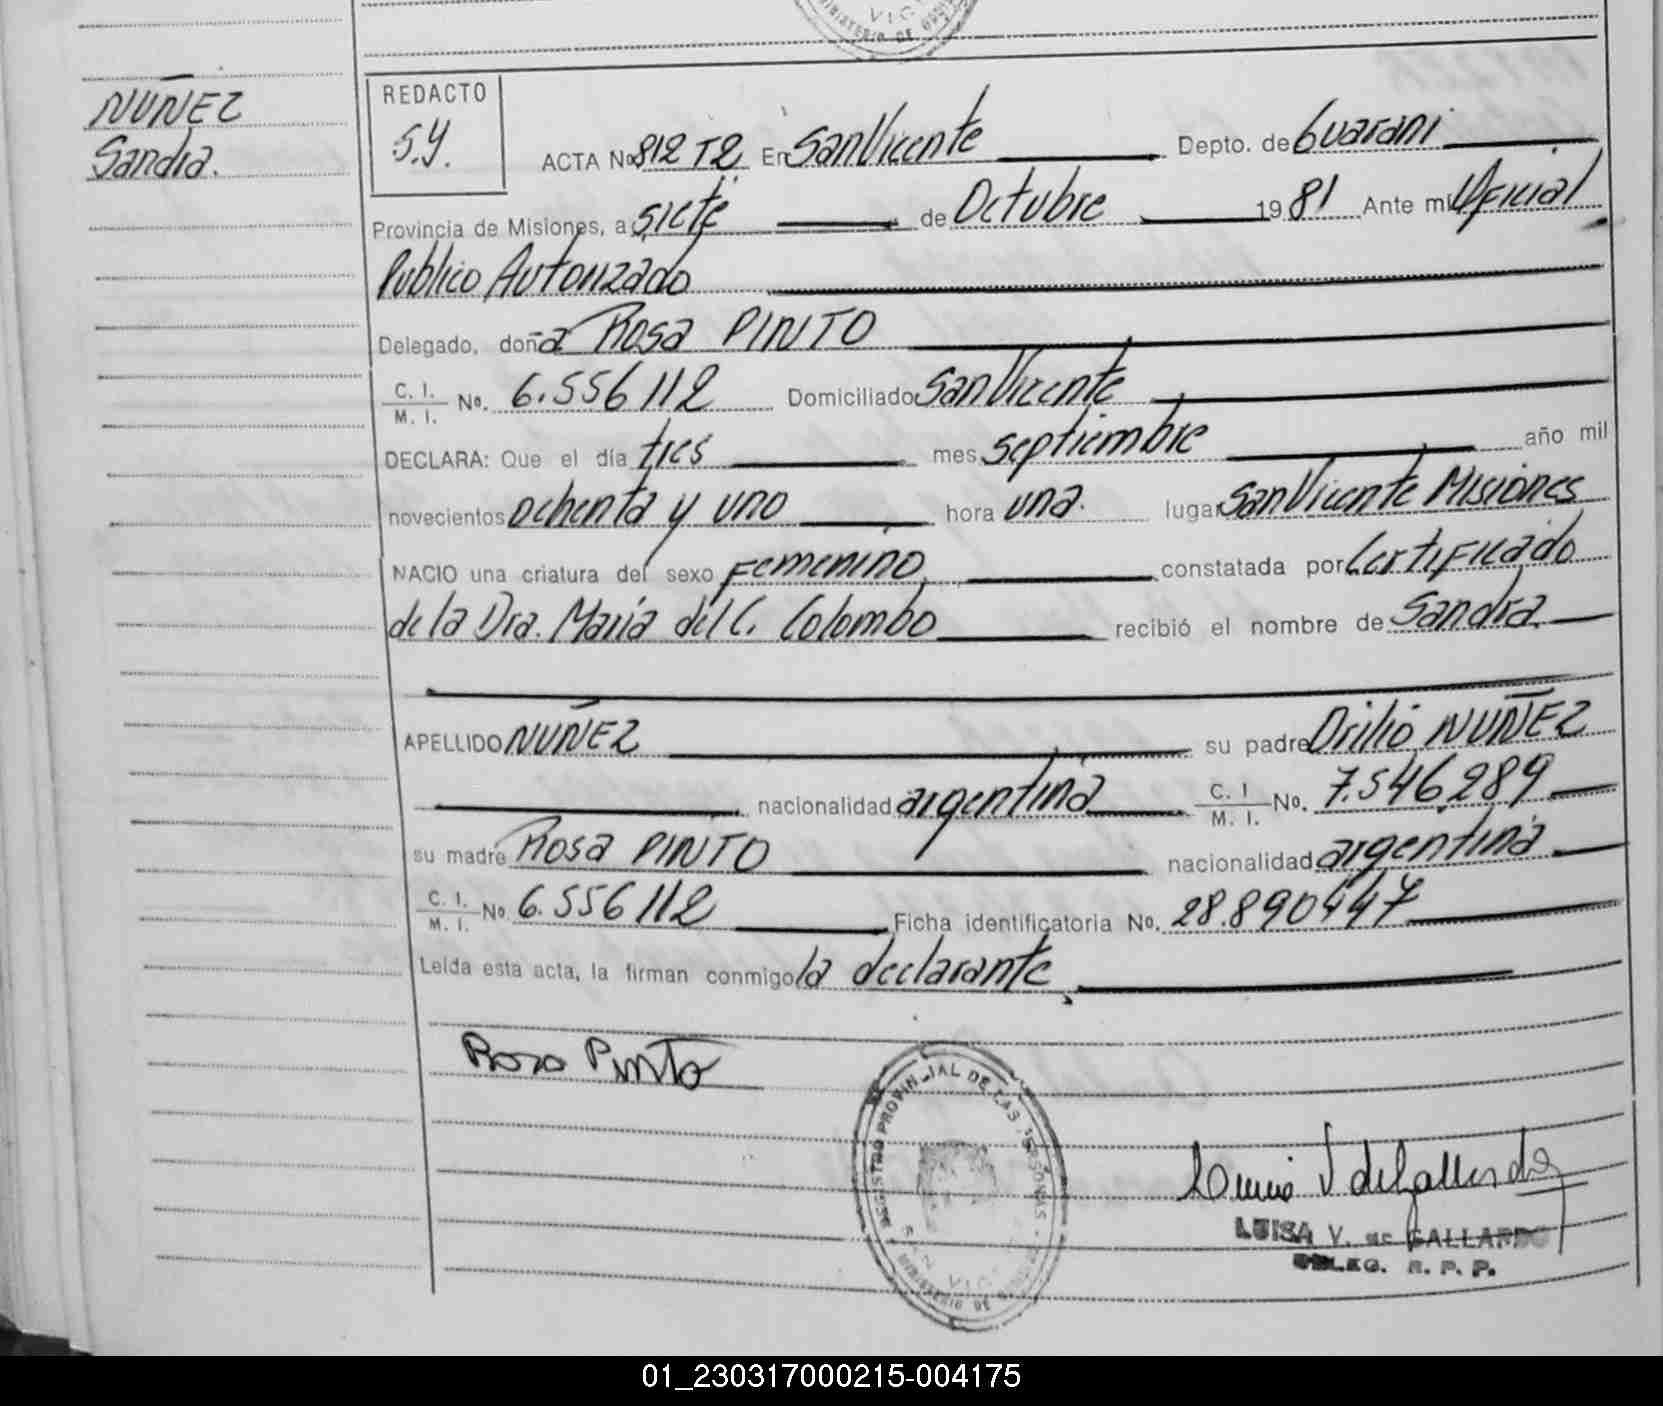 VIC
MINISTERIO DE GOBI
NUÑEZ
Sandra.
REDACTO
S.Y.
ACTA No 812 T2 En San Vicente Depto. de Guarani
Provincia de Misiones, a siete de Octubre 1981 Ante mi Oficial
Publico Autorizado
Delegado, doña Rosa PINTO
C. I. / M. I. No. 6.556112 Domiciliado San Vicente
DECLARA: Que el día tres mes septiembre año mil
novecientos ochenta y uno hora una. lugar San Vicente Misiones
NACIO una criatura del sexo Femenino constatada por Certificado
de la Dra. Maria del C. Colombo recibió el nombre de Sandra.
APELLIDO NUÑEZ su padre Orilio NUÑEZ
nacionalidad argentina C. I / M. I. No. 7.546.289
su madre Rosa PINTO nacionalidad argentina
C. I. / M. I. No 6.556112 Ficha identificatoria No. 28.890447
Leída esta acta, la firman conmigo la declarante
Rosa Pinto
REGISTRO PROVINCIAL DE LAS PERSONAS
SAN VIC
MINISTERIO DE GOB
Luisa V de Gallardo
LUISA V. DE GALLARDO
DELEG. R. P. P.
01_230317000215-004175